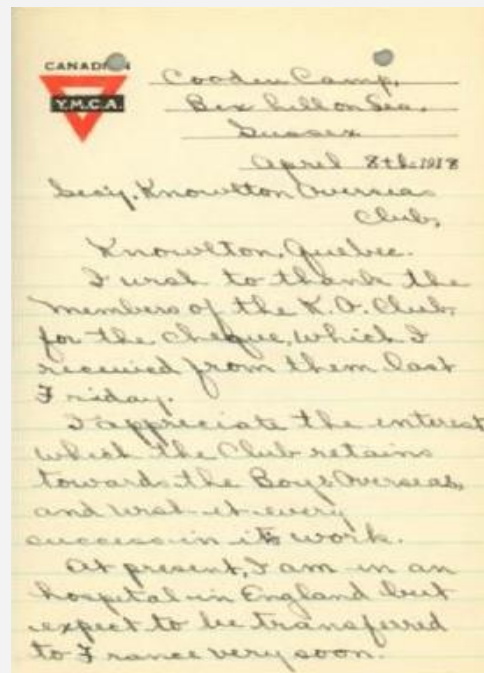 CANADIAN
Y.M.C.A.
Cooden Camp,
Bex hill on Sea.
Sussex
April 8th 1918
Sec'y. Knowlton Overseas
Club,
Knowlton, Quebec.
I wish to thank the
members of the K.O. Club,
for the cheque, which I
received from them last
Friday.
I appreciate the interest
which the Club retains
towards the Boys Overseas,
and wish it every
success in its work.
At present, I am in an
hospital in England but
expect to be transferred
to France very soon.